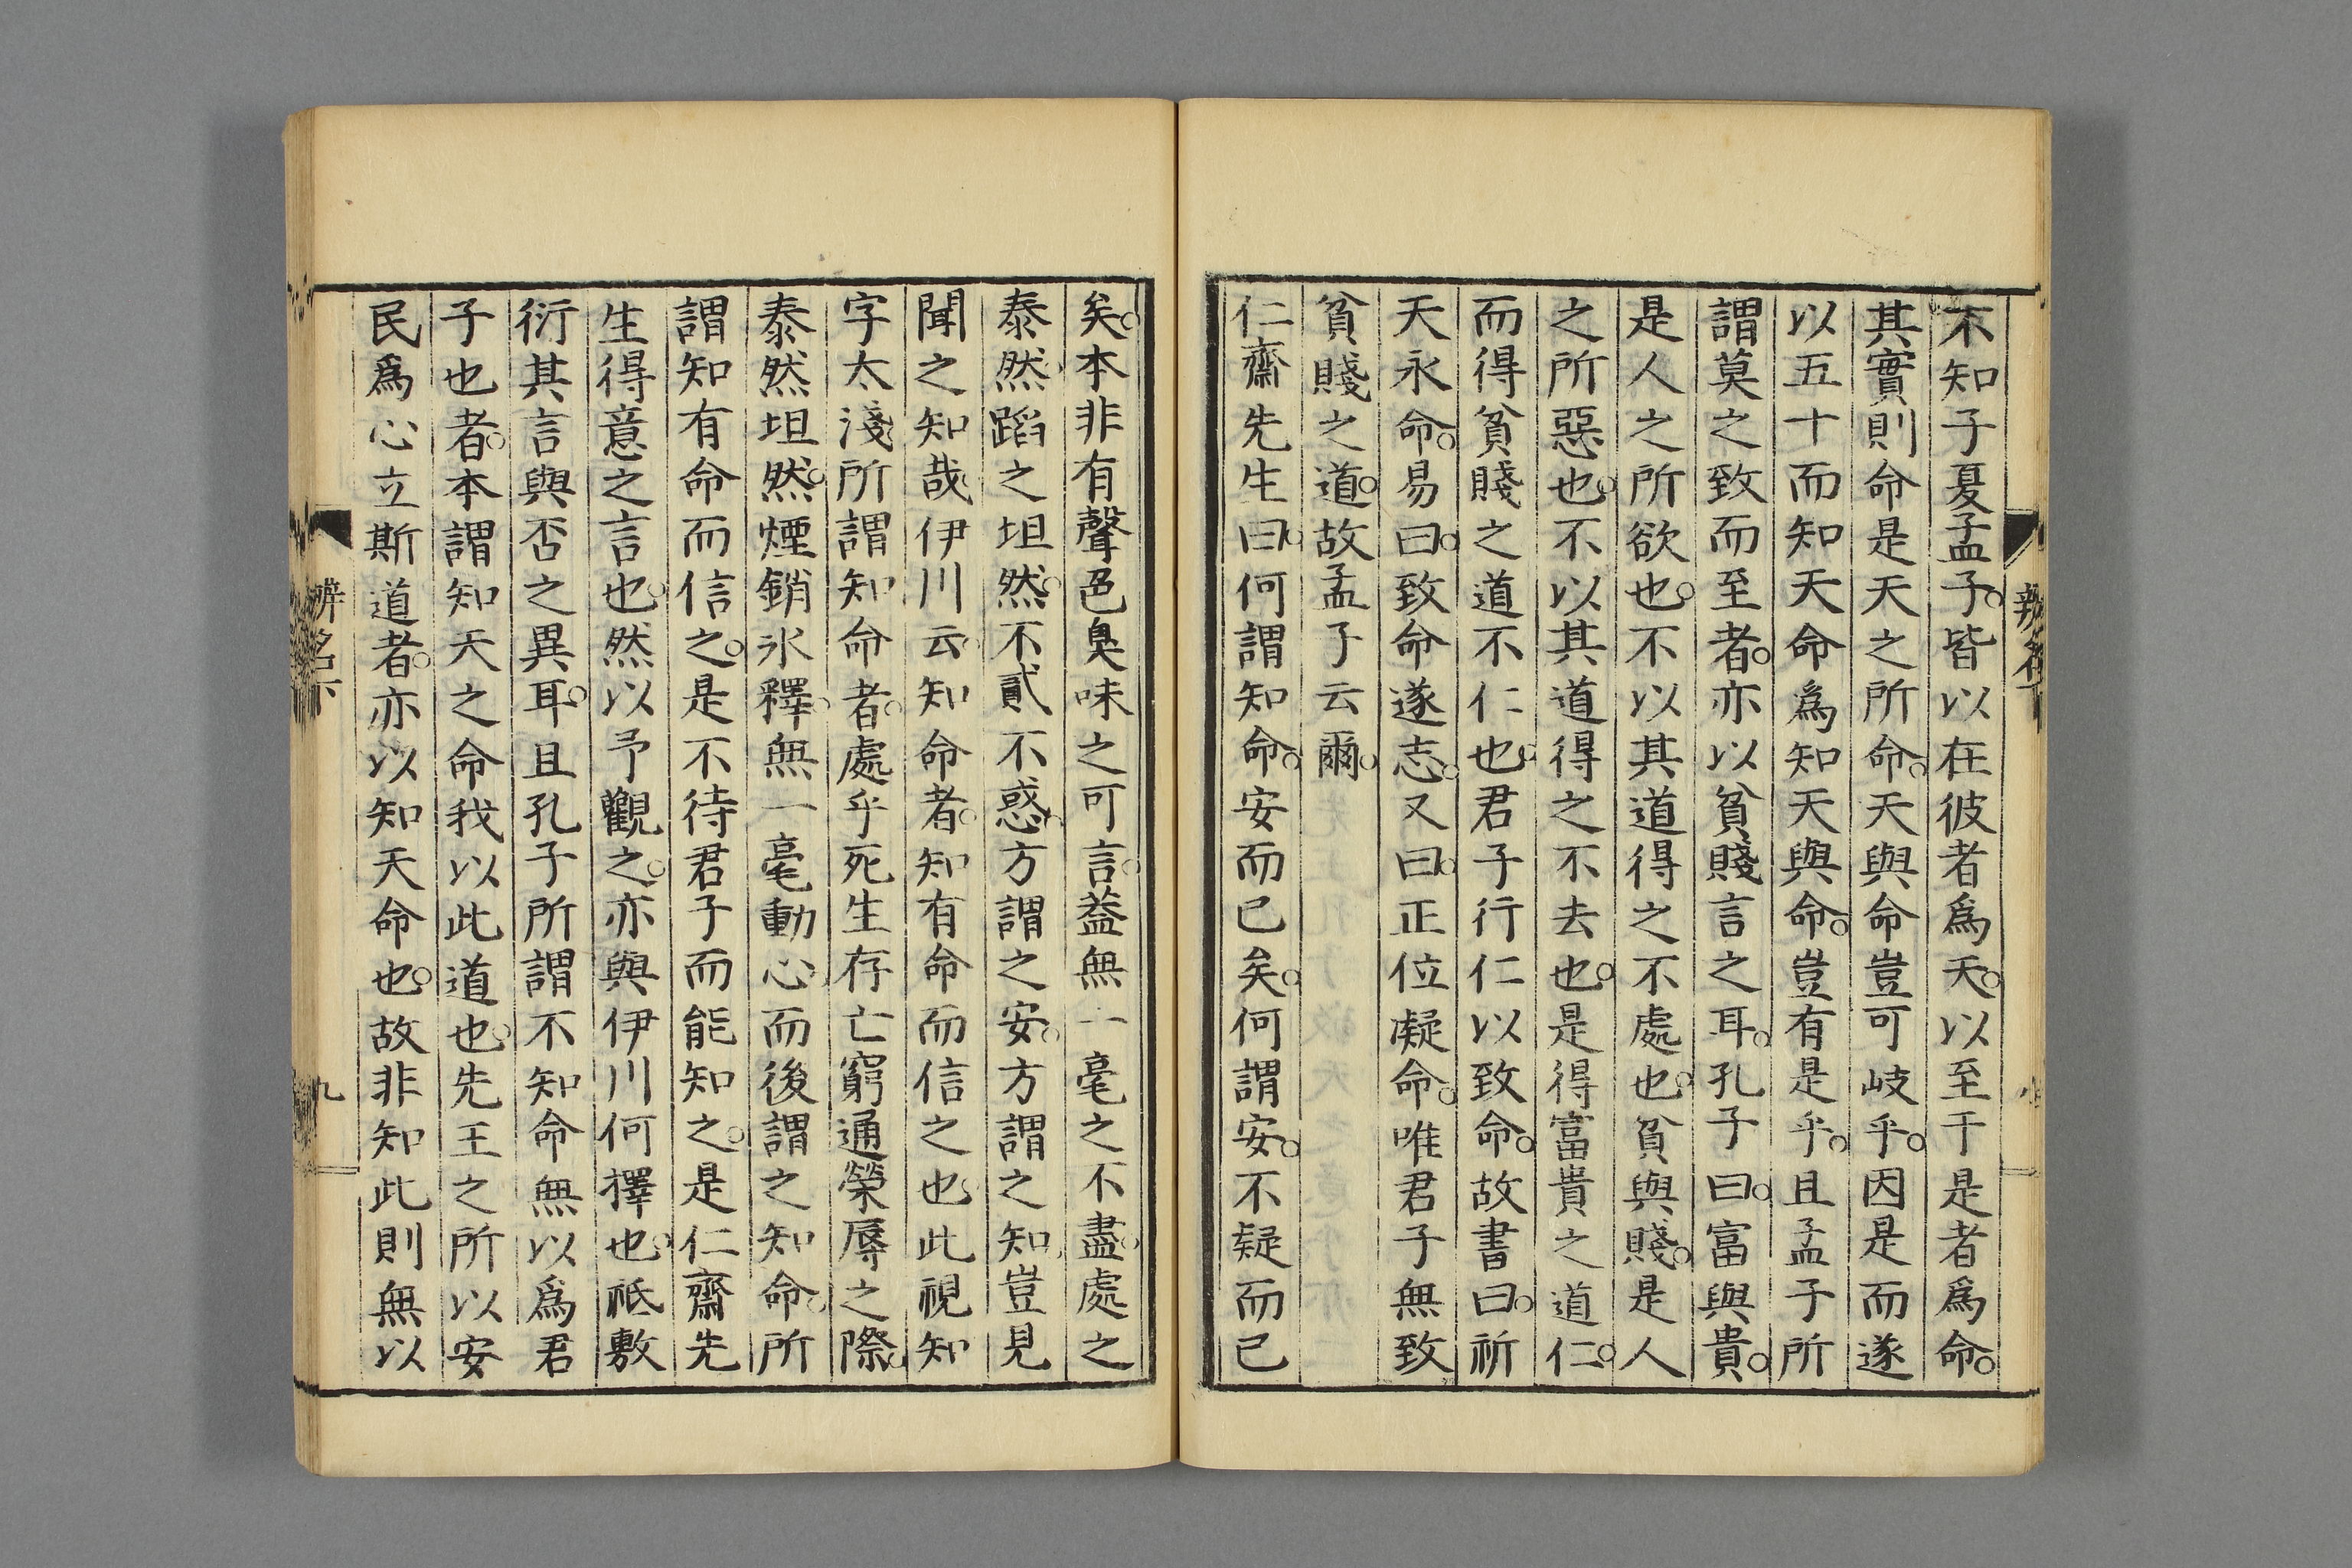 不知子夏孟子。皆以在彼者爲天。以至于是者爲命。
其實則命是天之所命。天與命豈可岐乎。因是而遂
以五十而知天命爲知天與命。豈有是乎。且孟子所
謂莫之致而至者。亦以貧賤言之耳。孔子曰。富與貴。
是人之所欲也。不以其道得之不處也。貧與賤。是人
之所惡也。不以其道得之不去也。是得富貴之道仁。
而得貧賤之道不仁也。君子行仁以致命。故書曰。祈
天永命。易曰。致命遂志。又曰。正位凝命。唯君子無致
貧賤之道。故孟子云爾。
仁齋先生曰。何謂知命。安而已矣。何謂安。不疑而已
矣。本非有聲色臭味之可言。蓋無一毫之不盡。處之
泰然。蹈之坦然。不貳不惑。方謂之安。方謂之知。豈見
聞之知哉。伊川云。知命者。知有命而信之也。此視知
字太淺。所謂知命者。處乎死生存亡窮通榮辱之際。
泰然坦然。煙銷氷釋。無一毫動心。而後謂之知命。所
謂知有命而信之。是不待君子而能知之。是仁齋先
生得意之言也。然以予觀之。亦與伊川何擇也。祇敷
衍其言與否之異耳。且孔子所謂不知命無以爲君
子也者。本謂知天之命我以此道也。先王之所以安
民爲心立斯道者。亦以知天命也。故非知此則無以
辨名下
九